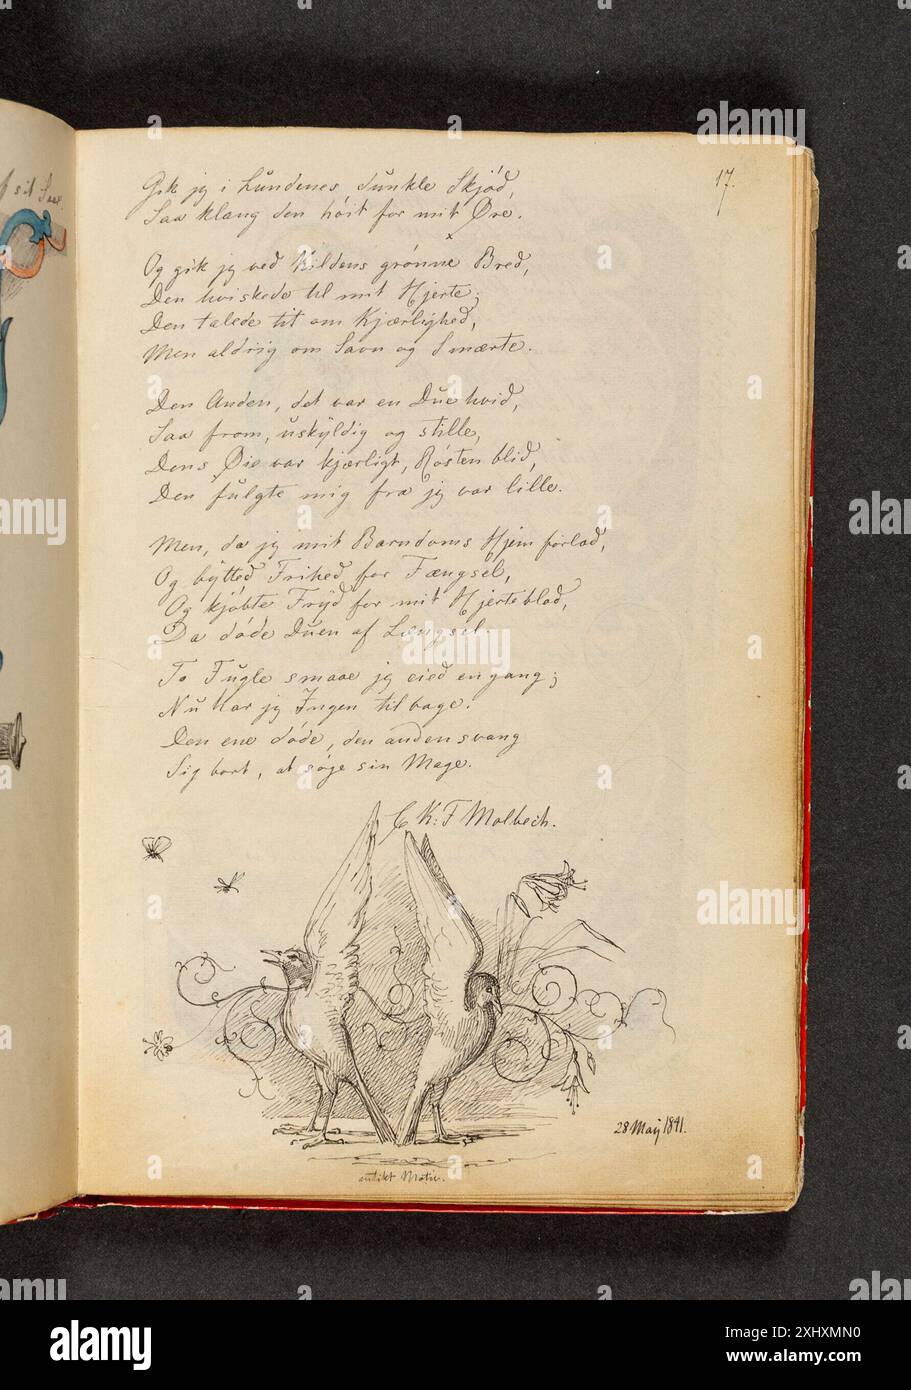 17.
Gik jeg i Lundenes dunkle Skjød,
Saa klang den høit for mit Øre.
Og gik jeg ved Kildens grønne Bred,
Den hviskede til mit Hjerte;
Den talede tit om Kjærlighed,
Men aldrig om Savn og Smerte.
Den Anden, det var en Due hvid,
Saa from, uskyldig og stille,
Dens Øie var kjærligt, Røsten blid,
Den fulgte mig fra jeg var lille.
Men, da jeg mit Barndoms Hjem forlod,
Og bytted Frihed for Fængsel,
Og kjøbte Fryd for mit Hjerteblod,
Da døde Duen af Længsel.
To Fugle smaae jeg eied engang;
Nu har jeg Ingen tilbage.
Den ene døde, den anden svang
Sig bort, at søge sin Mage.
C K: F Molbech.
28 May 1841.
antikt Motiv.
alamy
Image ID: 2XHXMN0
www.alamy.com